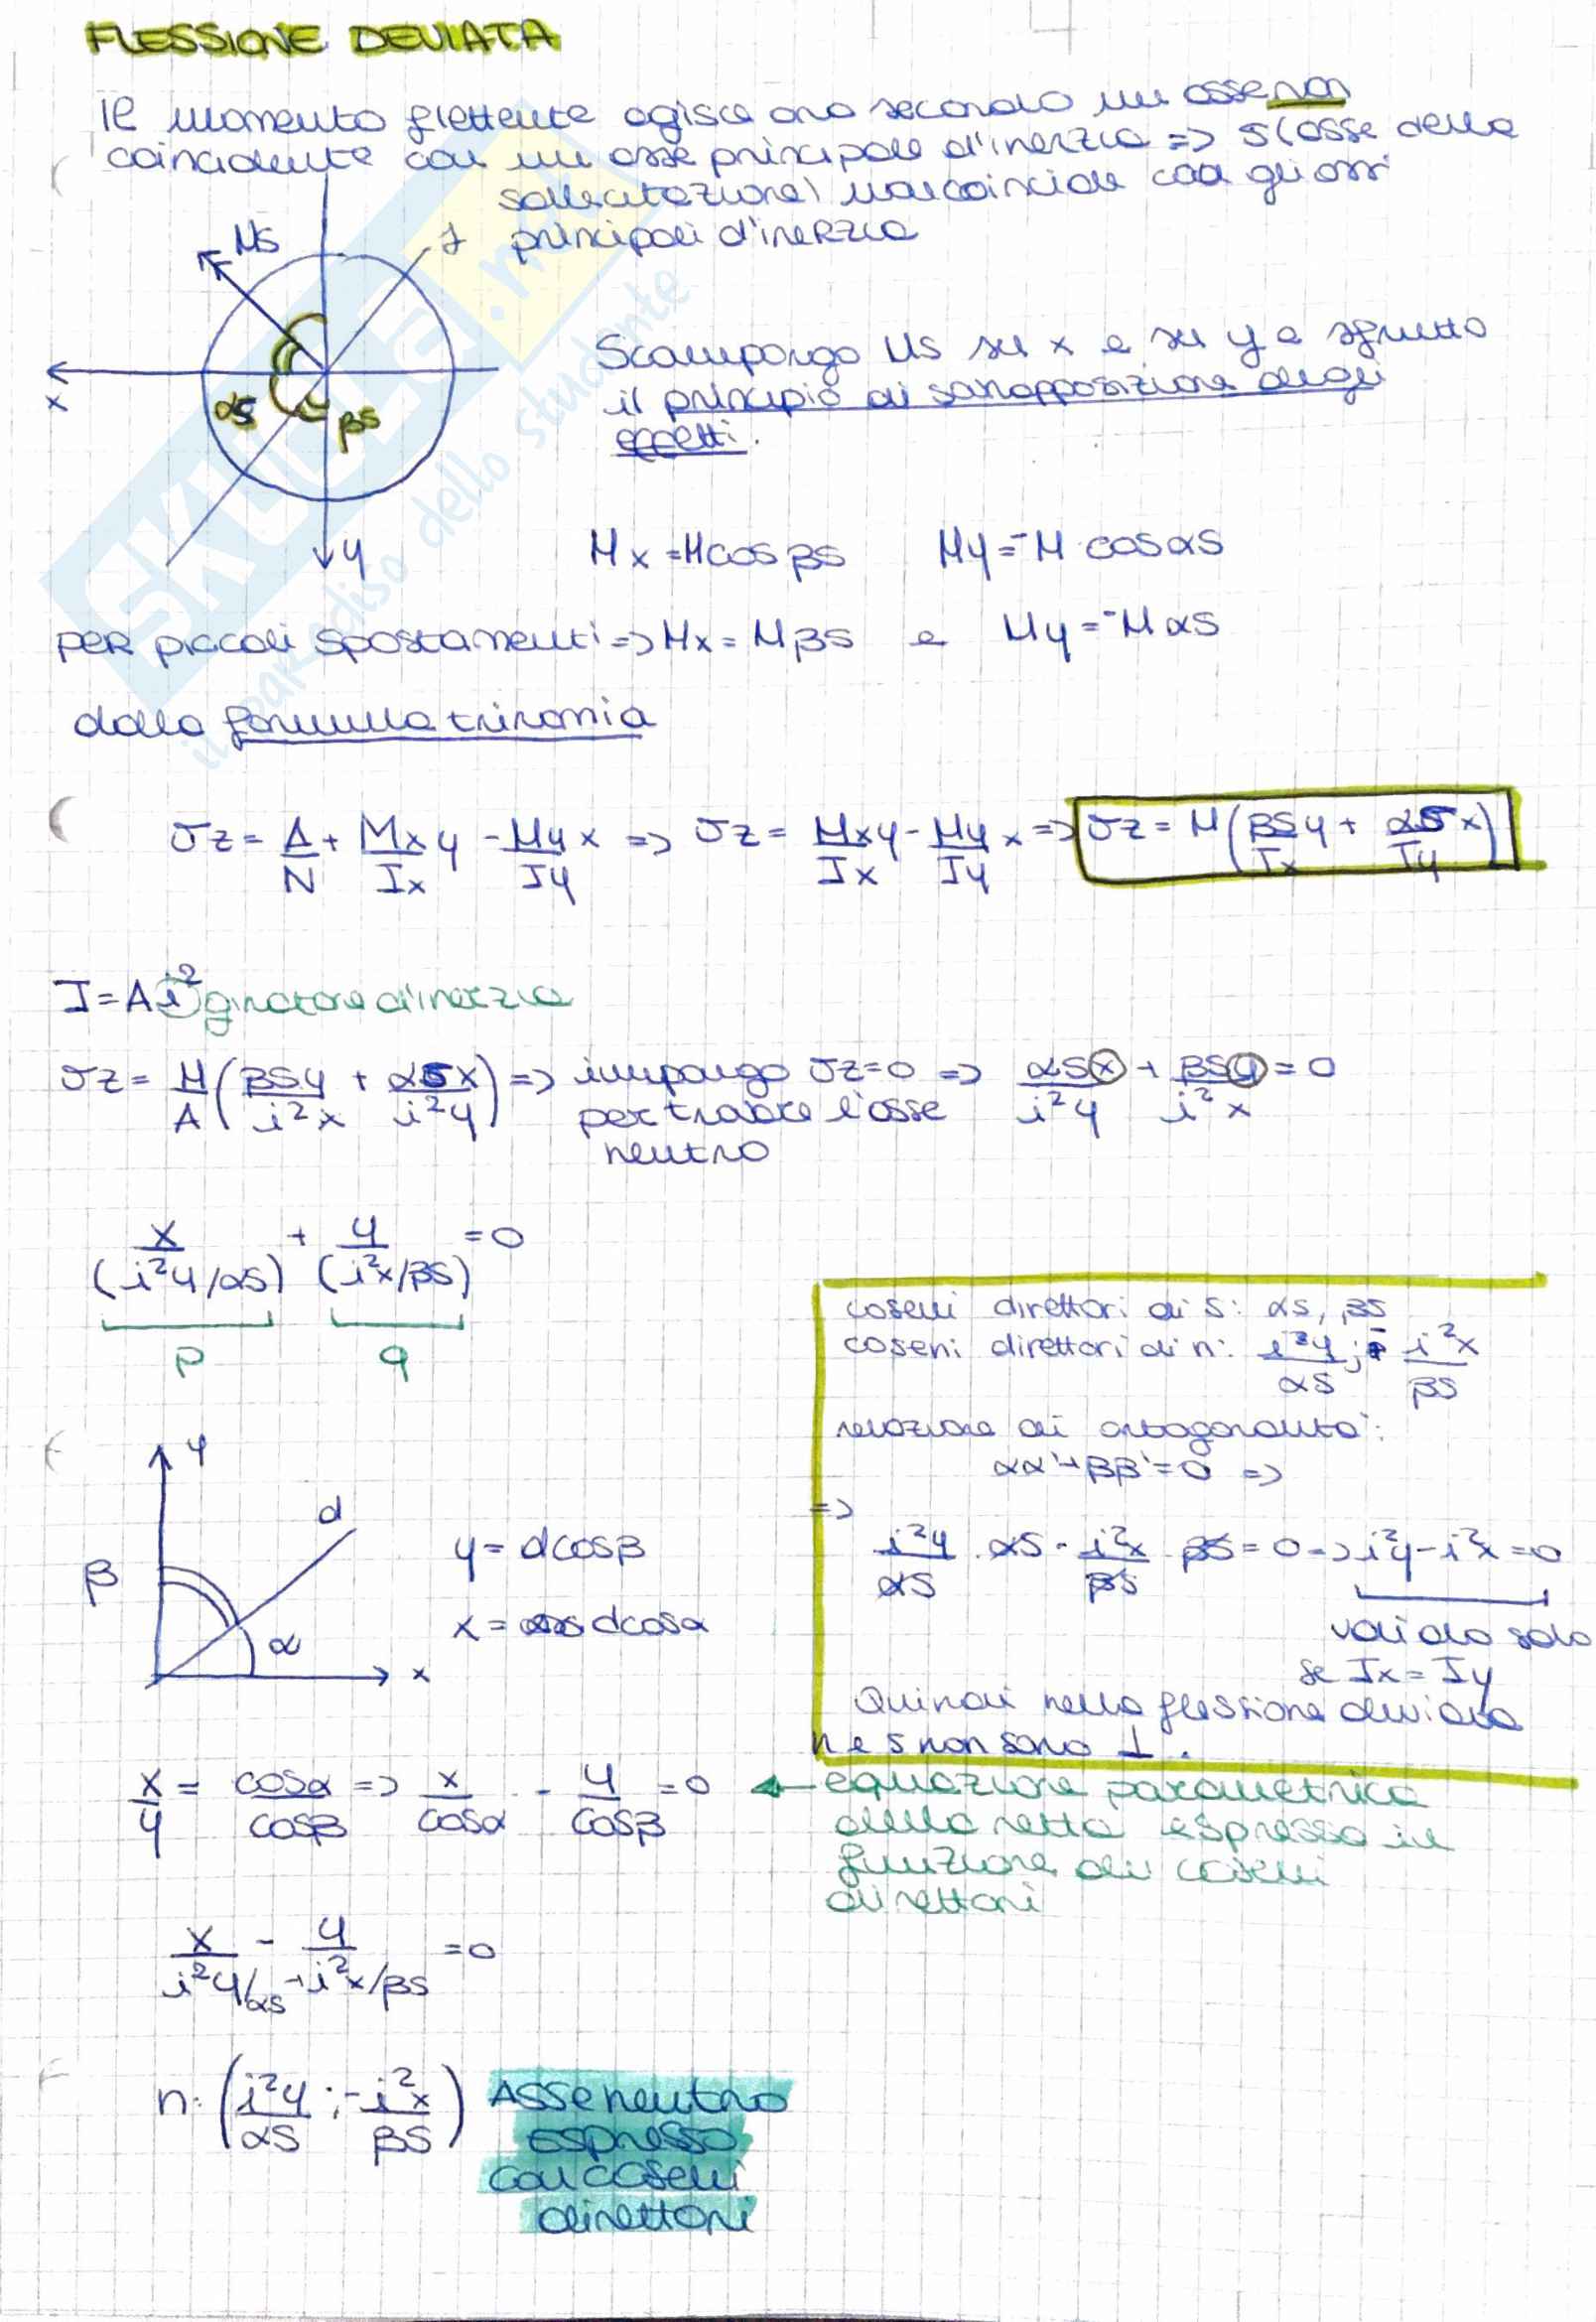 FLESSIONE DEVIATA
Il momento flettente agisce ora secondo un asse non
coincidente con un asse principale d'inerzia => s (asse della
sollecitazione) non coincide con gli assi
principali d'inerzia
Ms
s
x
αs
βs
y
Scompongo Ms su x e su y e sfrutto
il principio di sovrapposizione degli
effetti.
Mx = M cos βs   My = -M cos αs
per piccoli spostamenti => Mx = M βs e My = -M αs
dalla formula trinomia
σz = A/N + Mx/Ix y - My/Iy x => σz = Mx/Ix y - My/Iy x => σz = M (βs/Ix y + αs/Iy x)
I = A i² giratore d'inerzia
σz = M/A (βs y/i²x + αs x/i²y) => impongo σz = 0 => αs x/i²y + βs y/i²x = 0
per trovare l'asse
neutro
x/(i²y/αs) + y/(i²x/βs) = 0
p   q
coseni direttori di s: αs, βs
coseni direttori di n: i²y/αs ; - i²x/βs
relazione di ortogonalità:
αα' + ββ' = 0 =>
=> i²y/αs · αs - i²x/βs βs = 0 => i²y - i²x = 0
valido solo
se Ix = Iy
Quindi nella flessione deviata
n e s non sono ⊥.
y
d
β
α
x
y = d cos β
x = d cos α
x/y = cos α/cos β => x/cos α - y/cos β = 0
equazione parametrica
della retta espressa in
funzione dei coseni
direttori
x/(i²y/αs) - y/(-i²x/βs) = 0
n: (i²y/αs ; - i²x/βs) Asse neutro
espresso
con coseni
direttori
SKUOLA.net
il paradiso dello studente